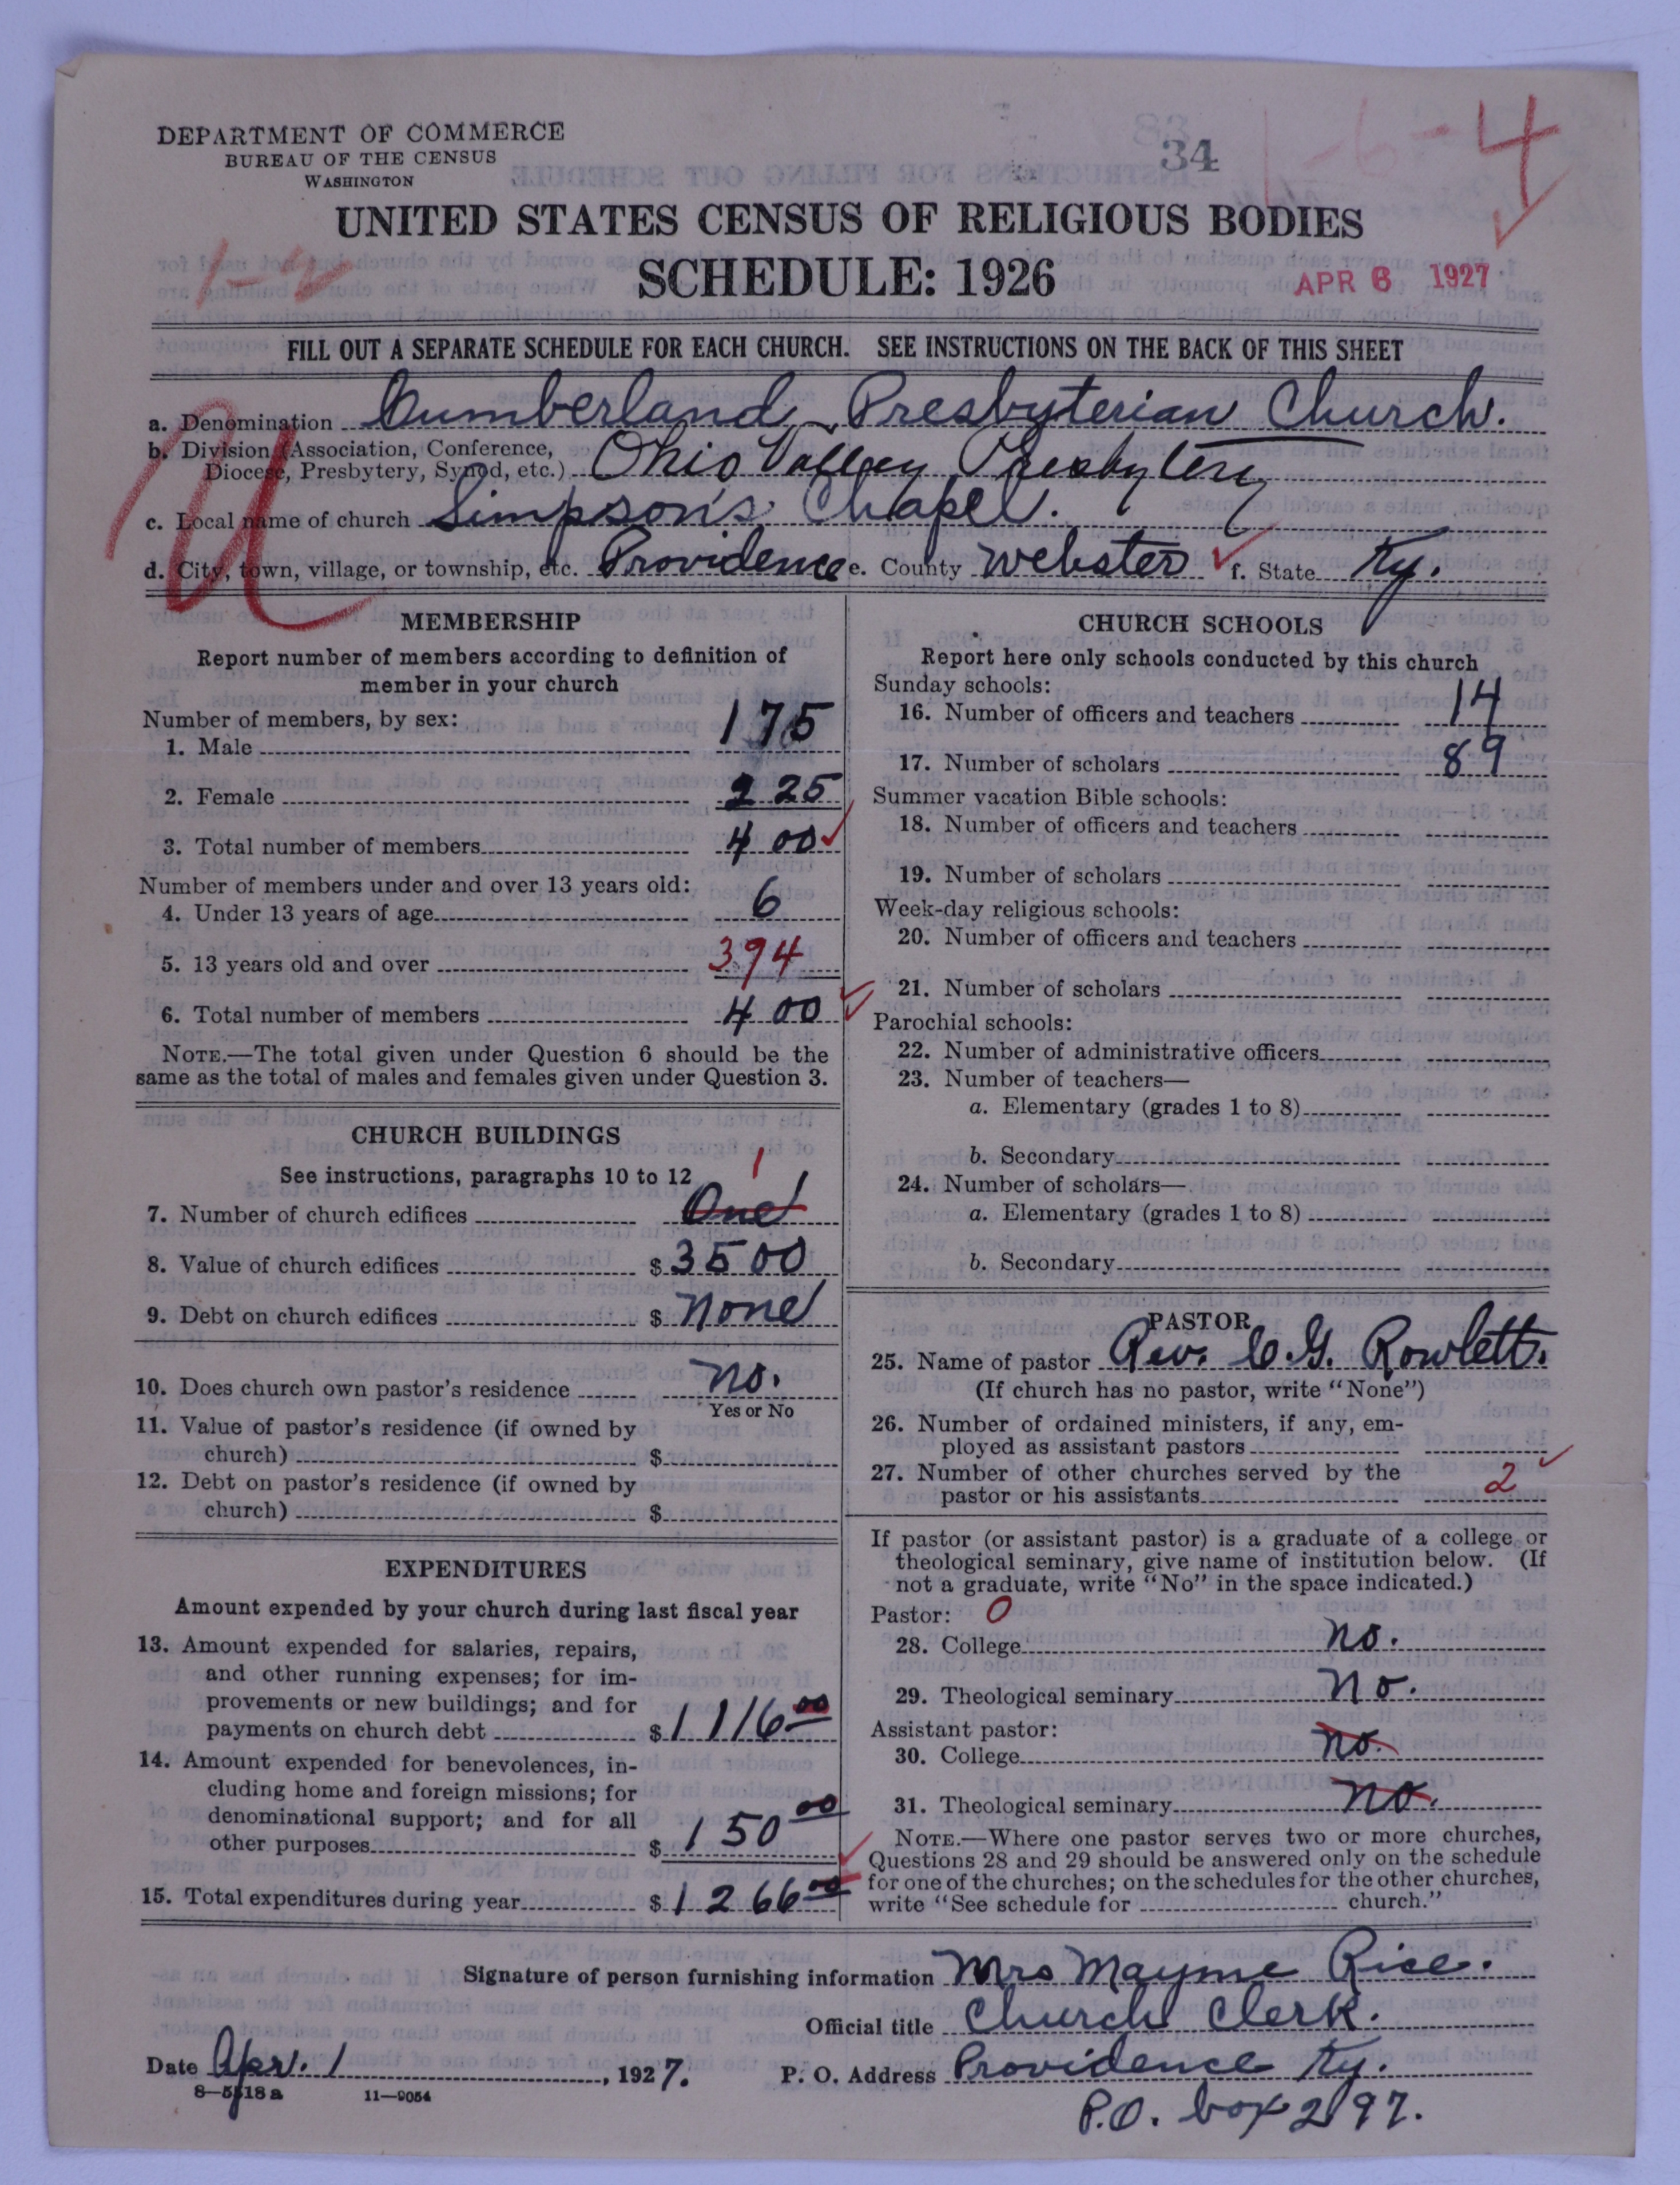 DEPARTMENT OF COMMERCE
BUREAU OF THE CENSUS
WASHINGTON
34
1-6-4
UNITED STATES CENSUS OF RELIGIOUS BODIES
SCHEDULE: 1926
APR 6 1927
FILL OUT A SEPARATE SCHEDULE FOR EACH CHURCH. SEE INSTRUCTIONS ON THE BACK OF THIS SHEET
a. Denomination Cumberland Presbyterian Church.
b. Division (Association, Conference,
Diocese, Presbytery, Synod, etc.) Ohio Valley Presbytery
c. Local name of church Simpson's Chapel.
d. City, town, village, or township, etc. Providence e. County Webster f. State Ky.
MEMBERSHIP
Report number of members according to definition of
member in your church
Number of members, by sex:
1. Male 175
2. Female 225
3. Total number of members 400
Number of members under and over 13 years old:
4. Under 13 years of age 6
5. 13 years old and over 394
6. Total number of members 400
NOTE.—The total given under Question 6 should be the
same as the total of males and females given under Question 3.
CHURCH BUILDINGS
See instructions, paragraphs 10 to 12
1
7. Number of church edifices One
8. Value of church edifices $3500
9. Debt on church edifices $ None
10. Does church own pastor's residence no.
Yes or No
11. Value of pastor's residence (if owned by
church) $
12. Debt on pastor's residence (if owned by
church) $
EXPENDITURES
Amount expended by your church during last fiscal year
13. Amount expended for salaries, repairs,
and other running expenses; for im-
provements or new buildings; and for
payments on church debt $1116 00
14. Amount expended for benevolences, in-
cluding home and foreign missions; for
denominational support; and for all
other purposes $150 00
15. Total expenditures during year $1266 00
CHURCH SCHOOLS
Report here only schools conducted by this church
Sunday schools:
16. Number of officers and teachers 14
17. Number of scholars 89
Summer vacation Bible schools:
18. Number of officers and teachers
19. Number of scholars
Week-day religious schools:
20. Number of officers and teachers
21. Number of scholars
Parochial schools:
22. Number of administrative officers
23. Number of teachers—
a. Elementary (grades 1 to 8)
b. Secondary
24. Number of scholars—
a. Elementary (grades 1 to 8)
b. Secondary
PASTOR
25. Name of pastor Rev. C. G. Rowlett.
(If church has no pastor, write "None")
26. Number of ordained ministers, if any, em-
ployed as assistant pastors
27. Number of other churches served by the
pastor or his assistants 2
If pastor (or assistant pastor) is a graduate of a college or
theological seminary, give name of institution below. (If
not a graduate, write "No" in the space indicated.)
Pastor: 0
28. College no.
29. Theological seminary No.
Assistant pastor:
30. College no.
31. Theological seminary no.
NOTE.—Where one pastor serves two or more churches,
Questions 28 and 29 should be answered only on the schedule
for one of the churches; on the schedules for the other churches,
write "See schedule for church."
Signature of person furnishing information Mrs Mayme Rice.
Official title Church Clerk.
Date Apr. 1, 1927. P. O. Address Providence Ky.
8—5518a 11—9054
P.O. box 297.